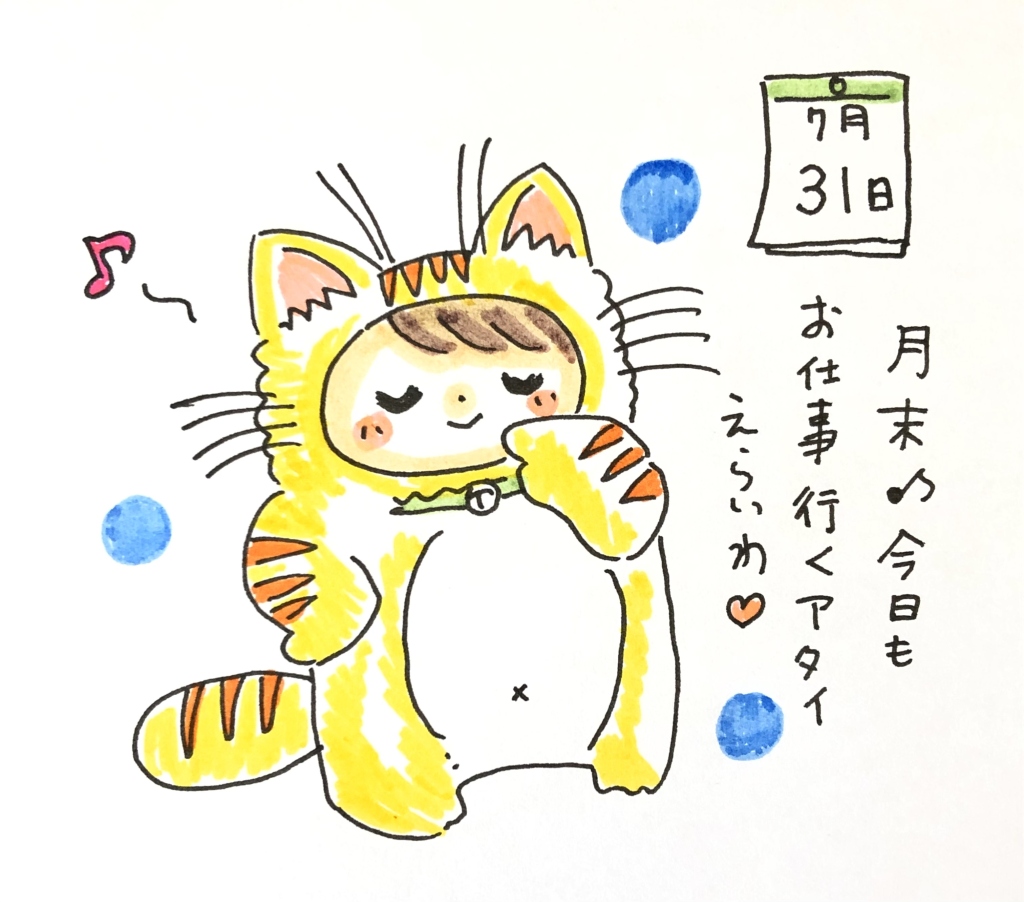 7月
31日
月末♪今日も
お仕事行くアタイ
えらいわ♥